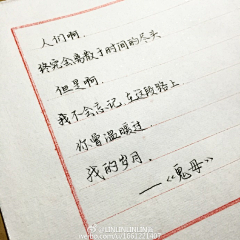 人们啊.
终究会离散于时间的尽头
但是啊.
我不会忘记,在远的路上
你曾温暖过.
我的岁月.
——《鬼母》